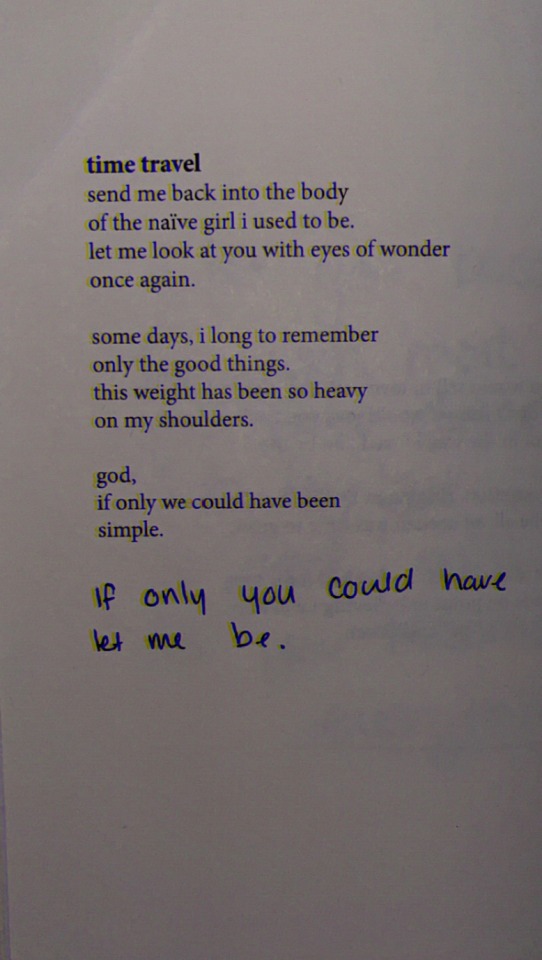 time travel
send me back into the body
of the naïve girl i used to be.
let me look at you with eyes of wonder
once again.
some days, i long to remember
only the good things.
this weight has been so heavy
on my shoulders.
god,
if only we could have been
simple.
If only you could have
let me be.